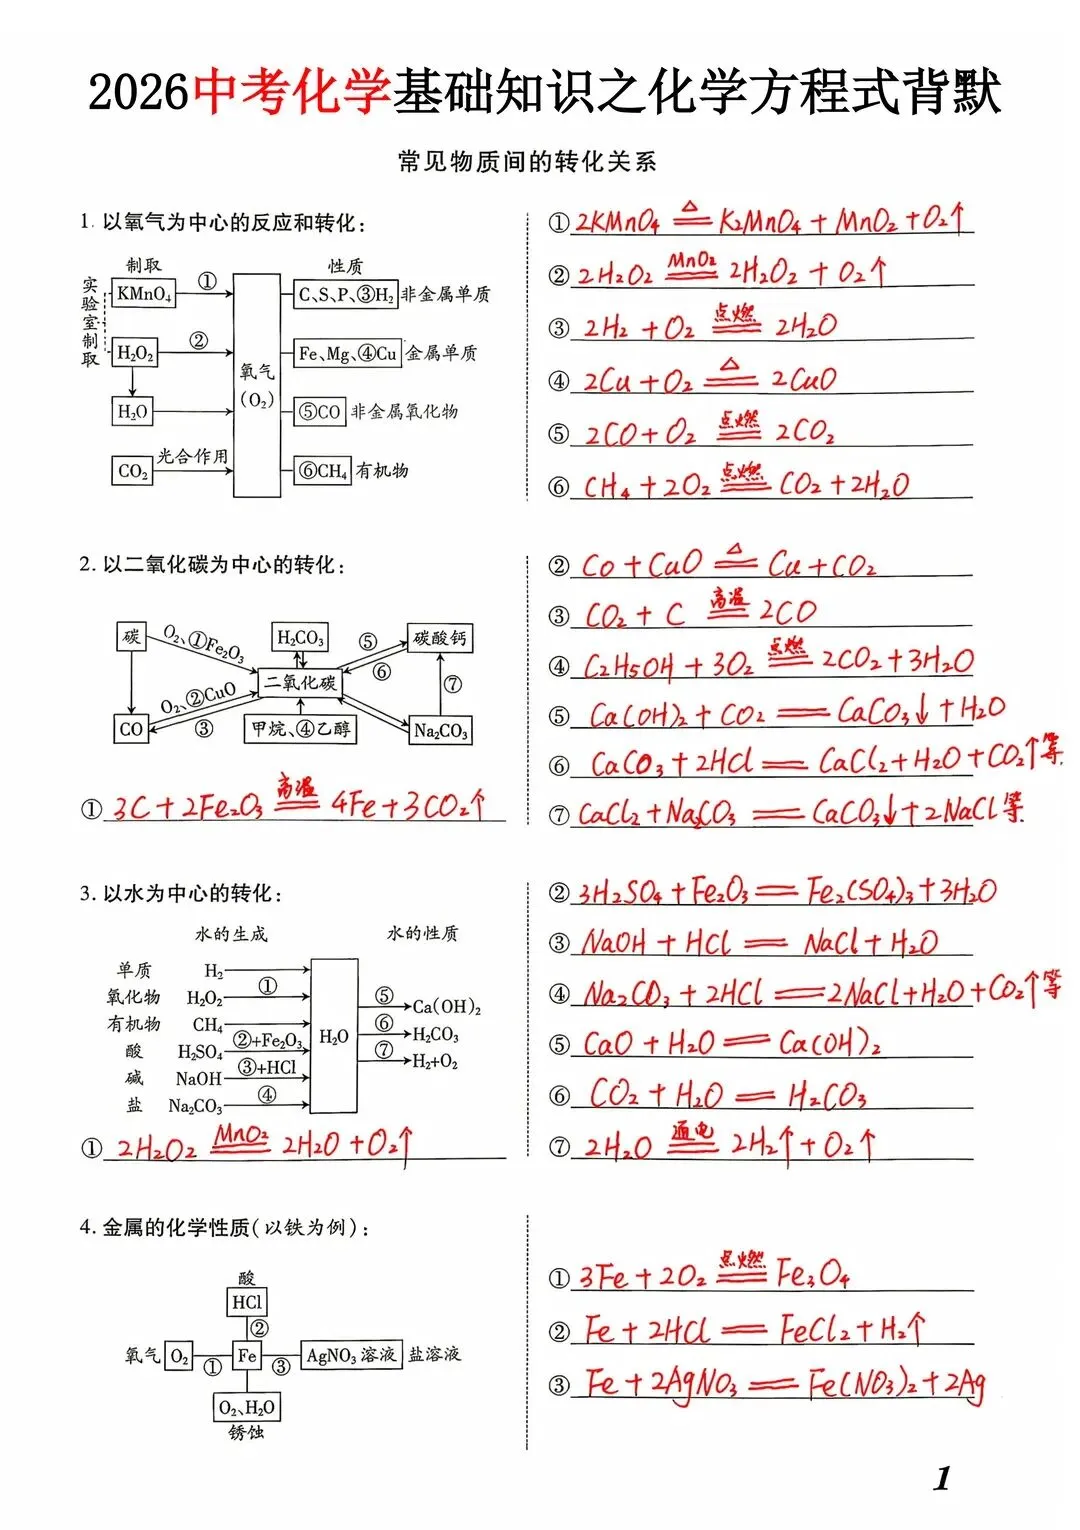 2026中考化学基础知识之化学方程式背默
常见物质间的转化关系
1. 以氧气为中心的反应和转化:
制取
性质
实验室制取
KMnO₄
①
H₂O₂
②
H₂O
CO₂
光合作用
氧气
(O₂)
C、S、P、③H₂ 非金属单质
Fe、Mg、④Cu 金属单质
⑤CO 非金属氧化物
⑥CH₄ 有机物
① 2KMnO₄ △══ K₂MnO₄ + MnO₂ + O₂↑
② 2H₂O₂ MnO₂══ 2H₂O₂ + O₂↑
③ 2H₂ + O₂ 点燃══ 2H₂O
④ 2Cu + O₂ △══ 2CuO
⑤ 2CO + O₂ 点燃══ 2CO₂
⑥ CH₄ + 2O₂ 点燃══ CO₂ + 2H₂O
2. 以二氧化碳为中心的转化:
碳
O₂、①Fe₂O₃
H₂CO₃
⑤
碳酸钙
⑥
二氧化碳
⑦
O₂、②CuO
CO
③
甲烷、④乙醇
Na₂CO₃
① 3C + 2Fe₂O₃ 高温══ 4Fe + 3CO₂↑
② Co + CuO △══ Cu + CO₂
③ CO₂ + C 高温══ 2CO
④ C₂H₅OH + 3O₂ 点燃══ 2CO₂ + 3H₂O
⑤ Ca(OH)₂ + CO₂ ══ CaCO₃↓ + H₂O
⑥ CaCO₃ + 2HCl ══ CaCl₂ + H₂O + CO₂↑等
⑦ CaCl₂ + Na₂CO₃ ══ CaCO₃↓ + 2NaCl等
3. 以水为中心的转化:
水的生成
水的性质
单质 H₂
氧化物 H₂O₂ ①
有机物 CH₄
酸 H₂SO₄ ②+Fe₂O₃
碱 NaOH ③+HCl
盐 Na₂CO₃ ④
H₂O
⑤ Ca(OH)₂
⑥ H₂CO₃
⑦ H₂+O₂
① 2H₂O₂ MnO₂══ 2H₂O + O₂↑
② 3H₂SO₄ + Fe₂O₃ ══ Fe₂(SO₄)₃ + 3H₂O
③ NaOH + HCl ══ NaCl + H₂O
④ Na₂CO₃ + 2HCl ══ 2NaCl + H₂O + CO₂↑等
⑤ CaO + H₂O ══ Ca(OH)₂
⑥ CO₂ + H₂O ══ H₂CO₃
⑦ 2H₂O 通电══ 2H₂↑ + O₂↑
4. 金属的化学性质(以铁为例):
酸
HCl
②
氧气 O₂ ① Fe ③ AgNO₃ 溶液 盐溶液
O₂、H₂O
锈蚀
① 3Fe + 2O₂ 点燃══ Fe₃O₄
② Fe + 2HCl ══ FeCl₂ + H₂↑
③ Fe + 2AgNO₃ ══ Fe(NO₃)₂ + 2Ag
1